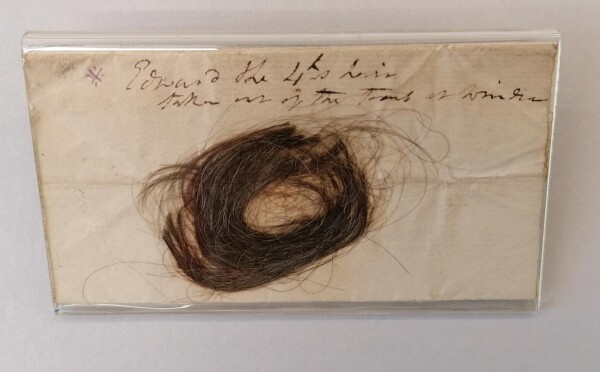 Edward the 4th's hair
taken out of the Tomb at Windsor